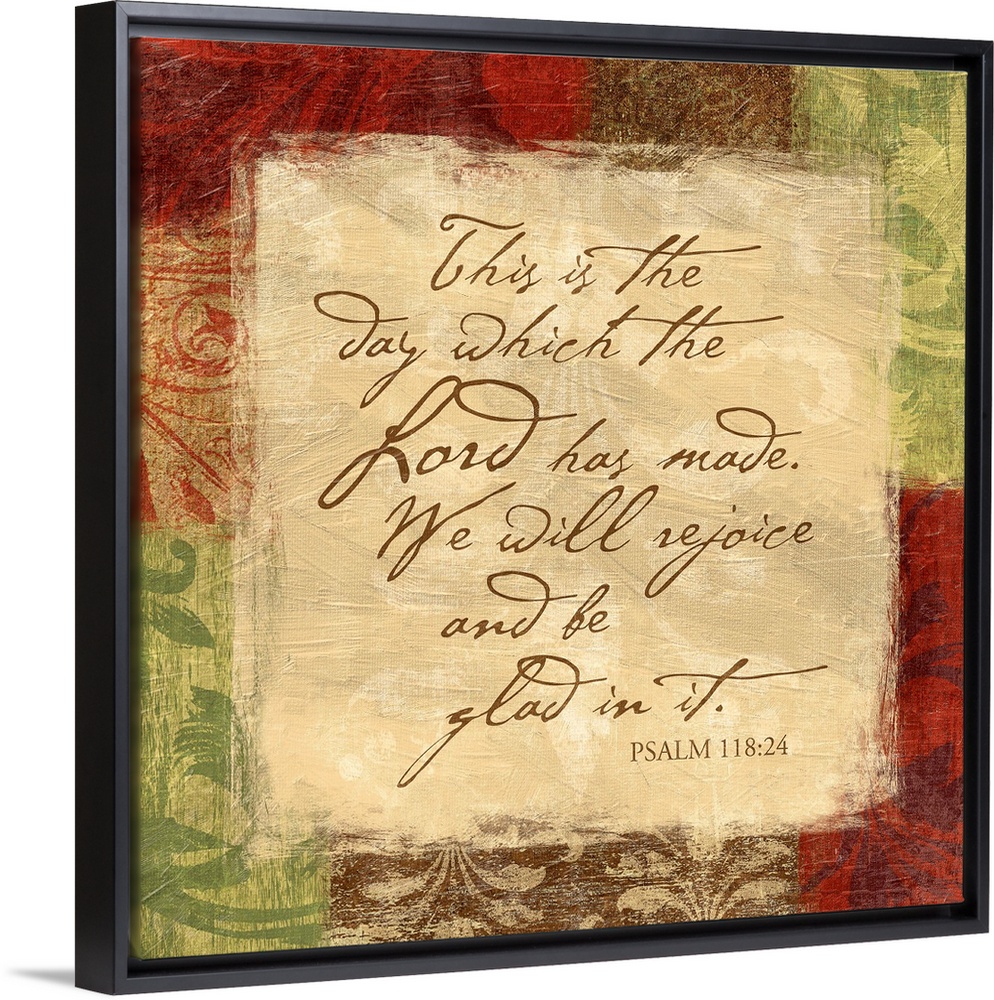 This is the
day which the
Lord has made.
We will rejoice
and be
glad in it.
PSALM 118:24